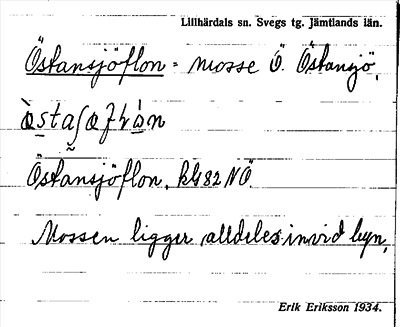 Lillhärdals sn. Svegs tg. Jämtlands län.
Östansjöflon = mosse Ö. Östansjö,
Östansjöflon, kbl 82 NÖ
Mossen ligger alldeles invid byn,
Erik Eriksson 1934.